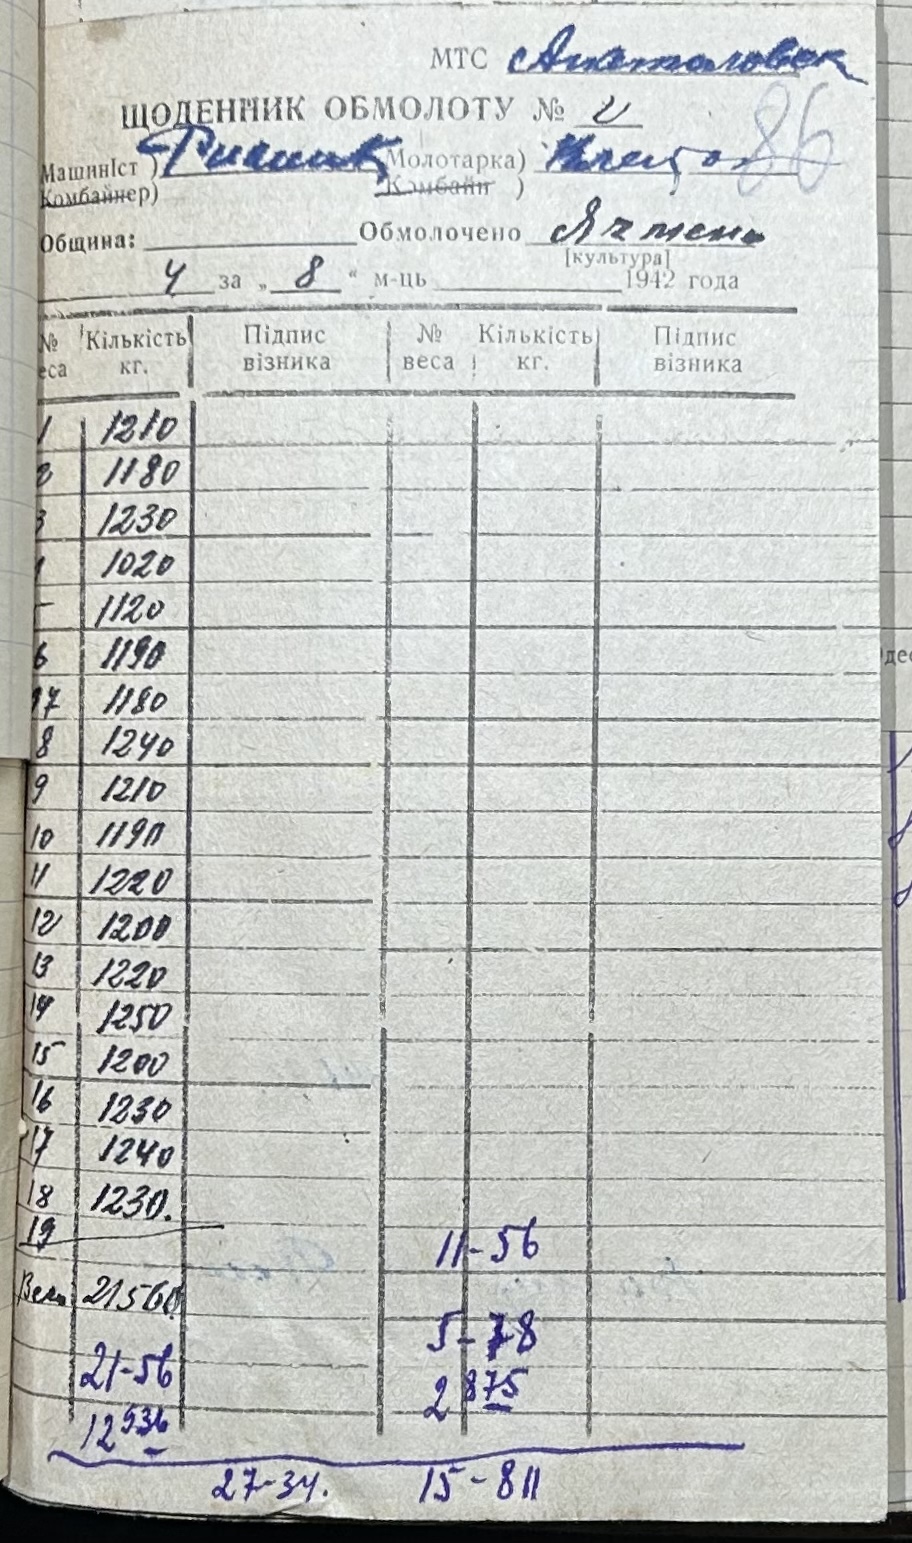 МТС Анатоловск
ЩОДЕННИК ОБМОЛОТУ № 2
86
Машиніст ) Молотарка)
Комбайнер) Комбайн )
Община: Обмолочено Ячмень
[культура]
4 за „ 8 “ м-ць 1942 года
№ веса Кількість кг. Підпис візника № веса Кількість кг. Підпис візника
1 1210
2 1180
3 1230
4 1020
5 1120
6 1190
7 1180
8 1240
9 1210
10 1190
11 1220
12 1200
13 1220
14 1250
15 1200
16 1230
17 1240
18 1230.
19
11-56
Всего 21560
5-78
21-56
2 875
12 936
27-34. 15-811